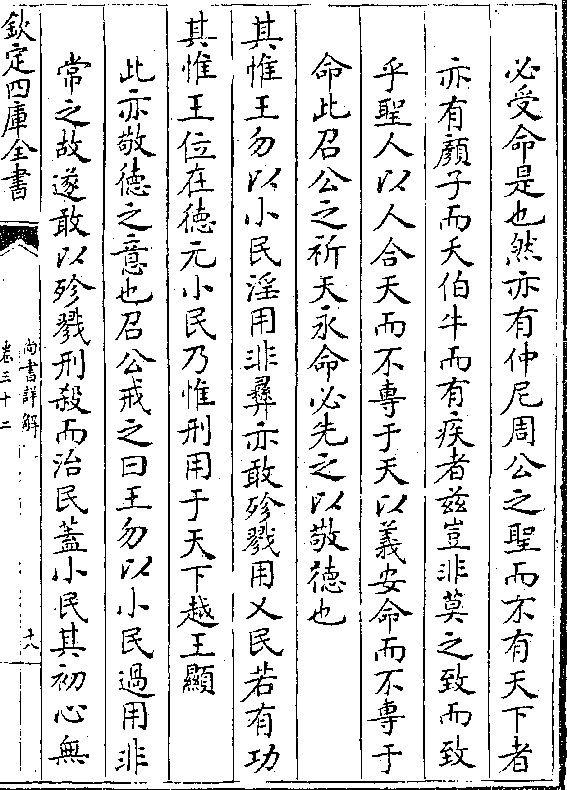 必受命是也然亦有仲尼周公之聖而不有天下者
亦有顔子而夭伯牛而有疾者兹豈非莫之致而致
乎聖人以人合天而不專于天以義安命而不專于
命此召公之祈天永命必先之以敬徳也
其惟王勿以小民淫用非彛亦敢殄戮用乂民若有功
其惟王位在徳元小民乃惟刑用于天下越王顯
此亦敬徳之意也召公戒之曰王勿以小民過用非
常之故遂敢以殄戮刑殺而治民蓋小民其初心無
欽定四庫全書
尚書詳解
卷三十二
十八